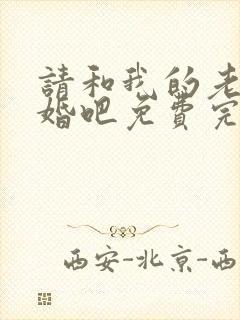 請和我的老
婚吧免費完
西安-北京-西